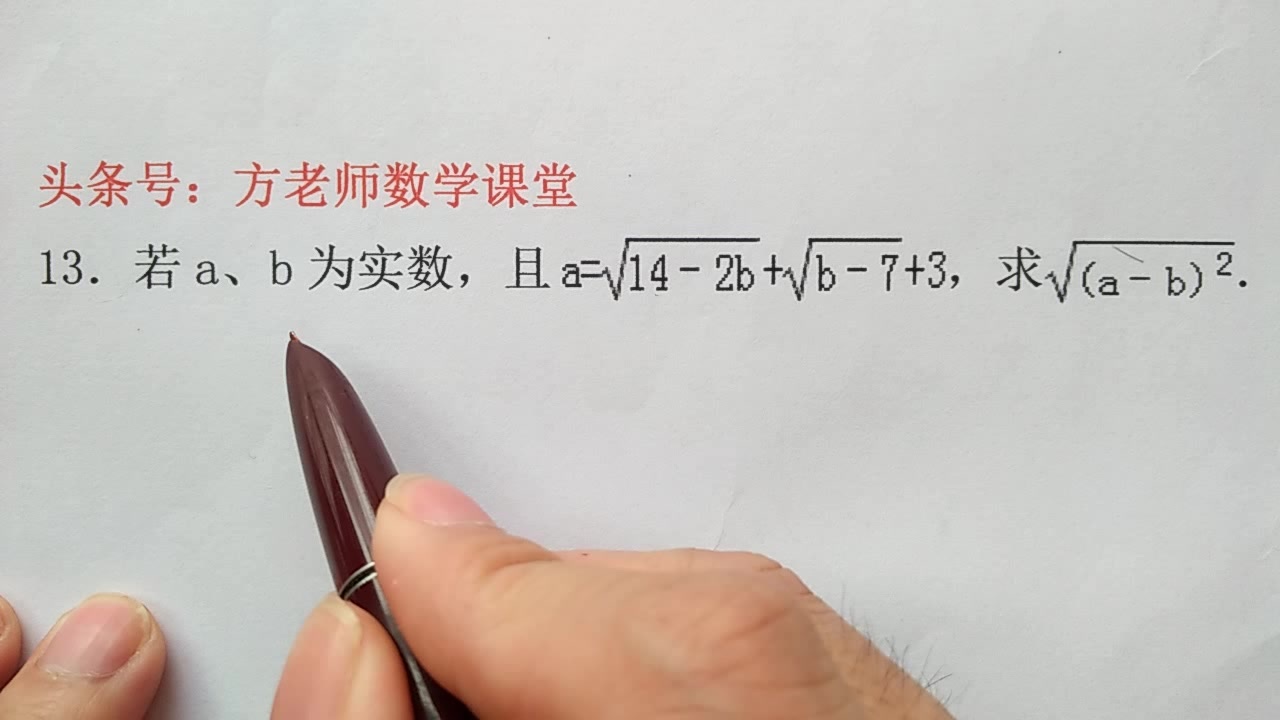 头条号：方老师数学课堂
13. 若 a、b 为实数，且 a=√(14-2b)+√(b-7)+3，求√((a-b)²).